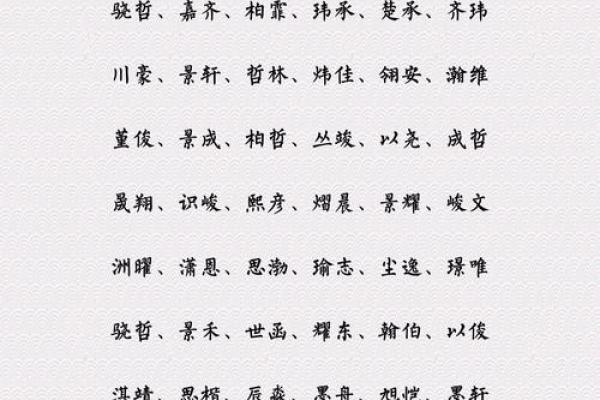 骁哲、嘉齐、柏霏、玮承、楚承、齐玮
川豪、景轩、哲林、炜佳、翎安、瀚维
董俊、景成、柏哲、丛竣、以尧、成哲
晟翔、识峻、熙彦、熠晨、景耀、峻文
洲曜、潇恩、思渤、瑜志、尘逸、璟唯
骁哲、景禾、世函、耀东、翰伯、以俊
淇靖、思楷、辰淼、墨舟、旭恺、墨轩